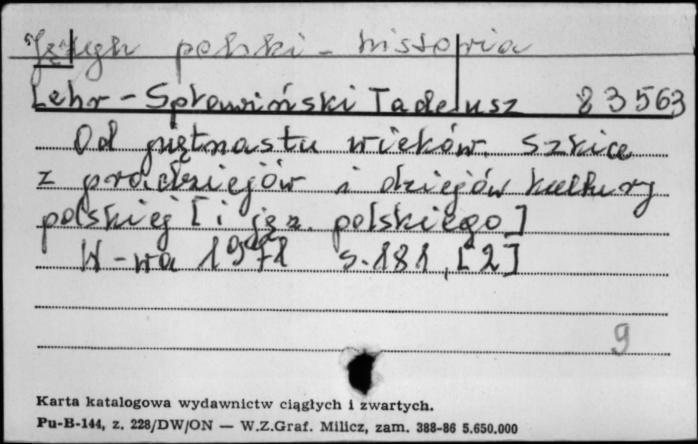 Język polski - historia
Lehr-Spławiński Tadeusz 83563
Od piętnastu wieków. Szkice
z pradziejów i dziejów kultury
polskiej [i jęz. polskiego]
W-wa 1971 s. 181, [2]
9
Karta katalogowa wydawnictw ciągłych i zwartych.
Pu-B-144, z. 228/DW/ON — W.Z.Graf. Milicz, zam. 388-86 5.650.000